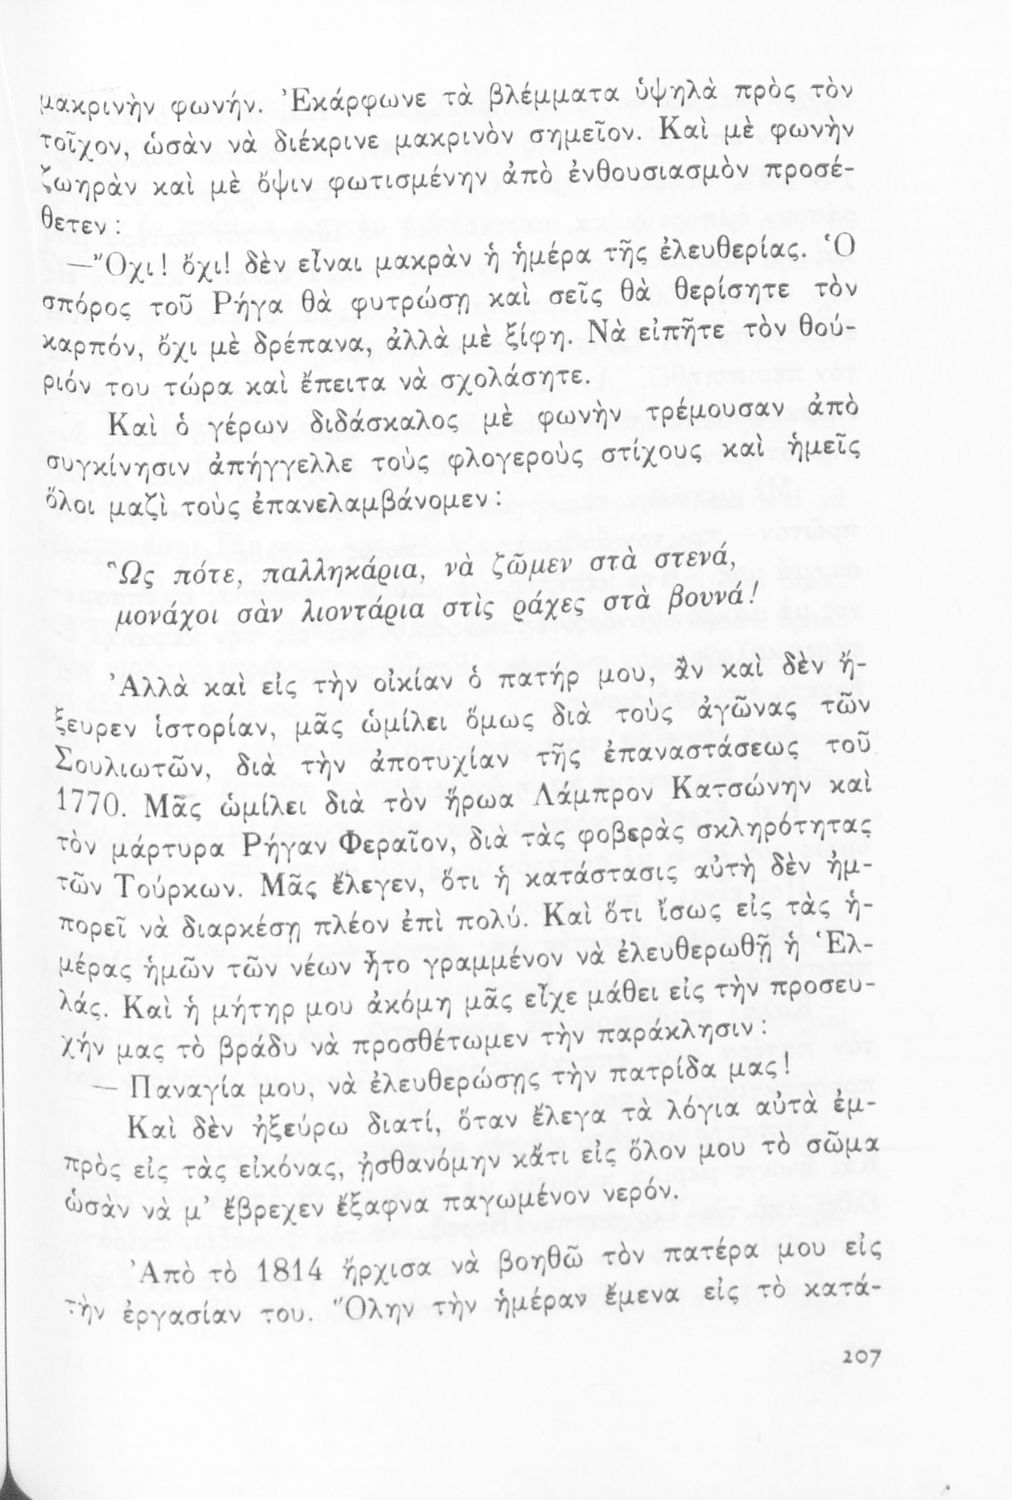 μακρινὴν φωνήν. Ἐκάρφωνε τὰ βλέμματα ὑψηλὰ πρὸς τὸν
τοῖχον, ὡσὰν νὰ διέκρινε μακρινὸν σημεῖον. Καὶ μὲ φωνὴν
ζωηρὰν καὶ μὲ ὄψιν φωτισμένην ἀπὸ ἐνθουσιασμὸν προσέ-
θετεν :
—Ὄχι! ὄχι! δὲν εἶναι μακρὰν ἡ ἡμέρα τῆς ἐλευθερίας. Ὁ
σπόρος τοῦ Ρήγα θὰ φυτρώσῃ καὶ σεῖς θὰ θερίσητε τὸν
καρπόν, ὄχι μὲ δρέπανα, ἀλλὰ μὲ ξίφη. Νὰ εἰπῆτε τὸν θού-
ριόν του τώρα καὶ ἔπειτα νὰ σχολάσητε.
Καὶ ὁ γέρων διδάσκαλος μὲ φωνὴν τρέμουσαν ἀπὸ
συγκίνησιν ἀπήγγελλε τοὺς φλογεροὺς στίχους καὶ ἡμεῖς
ὅλοι μαζὶ τοὺς ἐπανελαμβάνομεν :
Ὣς πότε, παλληκάρια, νὰ ζῶμεν στὰ στενά,
μονάχοι σὰν λιοντάρια στὶς ράχες στὰ βουνά!
Ἀλλὰ καὶ εἰς τὴν οἰκίαν ὁ πατήρ μου, ἂν καὶ δὲν ἤ-
ξευρεν ἱστορίαν, μᾶς ὡμίλει ὅμως διὰ τοὺς ἀγῶνας τῶν
Σουλιωτῶν, διὰ τὴν ἀποτυχίαν τῆς ἐπαναστάσεως τοῦ
1770. Μᾶς ὡμίλει διὰ τὸν ἥρωα Λάμπρον Κατσώνην καὶ
τὸν μάρτυρα Ρήγαν Φεραῖον, διὰ τὰς φοβερὰς σκληρότητας
τῶν Τούρκων. Μᾶς ἔλεγεν, ὅτι ἡ κατάστασις αὐτὴ δὲν ἠμ-
πορεῖ νὰ διαρκέσῃ πλέον ἐπὶ πολύ. Καὶ ὅτι ἴσως εἰς τὰς ἡ-
μέρας ἡμῶν τῶν νέων ἦτο γραμμένον νὰ ἐλευθερωθῇ ἡ Ἑλ-
λάς. Καὶ ἡ μήτηρ μου ἀκόμη μᾶς εἶχε μάθει εἰς τὴν προσευ-
χήν μας τὸ βράδυ νὰ προσθέτωμεν τὴν παράκλησιν :
— Παναγία μου, νὰ ἐλευθερώσῃς τὴν πατρίδα μας!
Καὶ δὲν ἠξεύρω διατί, ὅταν ἔλεγα τὰ λόγια αὐτὰ ἐμ-
πρὸς εἰς τὰς εἰκόνας, ᾐσθανόμην κἄτι εἰς ὅλον μου τὸ σῶμα
ὡσὰν νὰ μ' ἔβρεχεν ἔξαφνα παγωμένον νερόν.
Ἀπὸ τὸ 1814 ἤρχισα νὰ βοηθῶ τὸν πατέρα μου εἰς
τὴν ἐργασίαν του. Ὅλην τὴν ἡμέραν ἔμενα εἰς τὸ κατά-
207